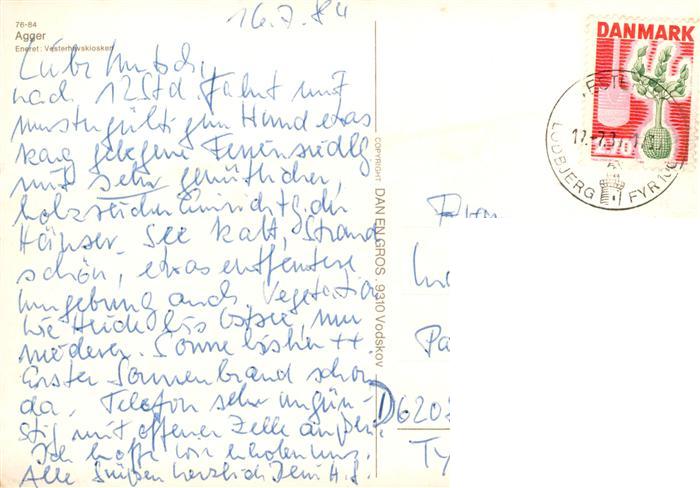 76-84
Agger
Eneret: Vesterhavskiosken
16.7.84
Liebe
nach 12 Std. Fahrt mit
mustergültigem Hund etwas
karg gelegene Feriensiedlg
mit sehr gemütlicher,
holzreicher Einrichtg. der
Häuser. See kalt, Strand
schön, etwas entferntere
Umgebung auch. Vegetation
wie Heide bis Ostsee, nur
niederer. Sonne bisher ++.
Erster Sonnenbrand schon
da. Telefon sehr ungün-
stig mit offener Zelle außen.
Ich hoffe wir erholen uns.
Alle grüßen herzlich Dein H.G.
COPYRIGHT: DAN EN GROS. 9310 Vodskov
DANMARK
LODBJERG FYR
D 6208